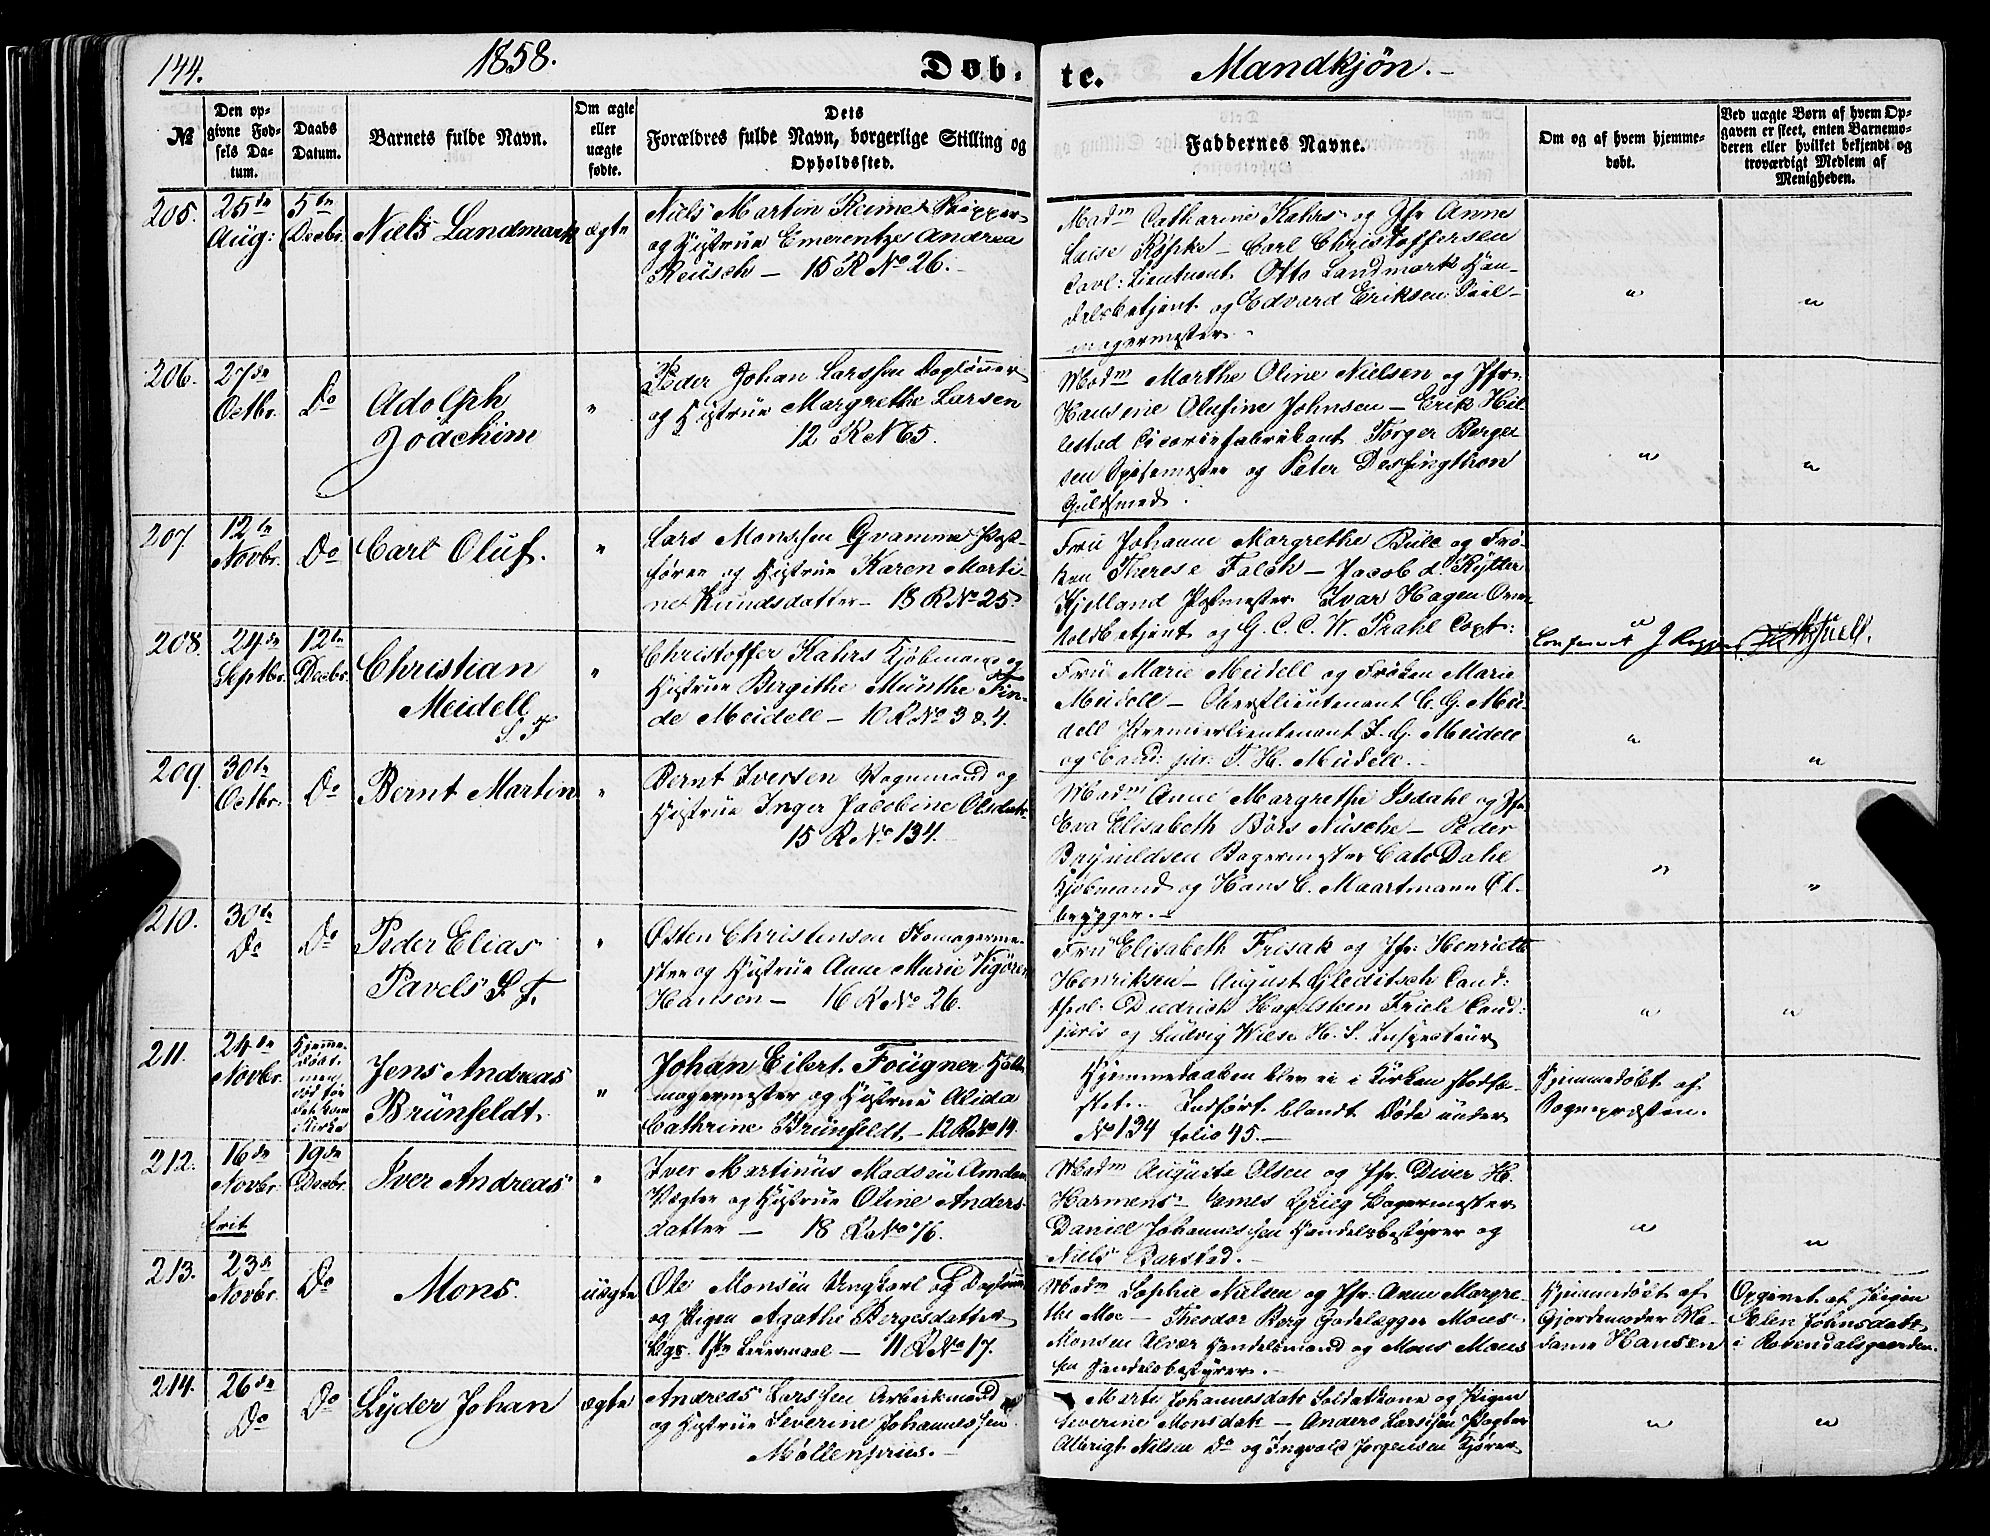 144.
1858.
Døb-
te.
Mandkjøn.-
№
Den op-
givne Fød-
sels Da-
tum.
Daabs
Datum.
Barnets fulde Navn.
Om ægte
eller
uægte
fødte.
Dets
Forældres fulde Navn, borgerlige Stilling og
Opholdssted.
Faddernes Navne.
Om og af hvem hjemme-
døbt.
Ved uægte Børn af hvem Op-
gaven er skeet, enten Barnemo-
deren eller hvilket bekjendt og
troværdigt Medlem af
Menigheden.
205.
25de
Aug:
5te
Decbr.
Niels Landmark
ægte
Niels Martin Reimer Skipper
og Hustrue Emerentze Andrea
Reusch – 15 R No 26.
Madm Catharine Kahrs og Jfr Anne
Luise – Carl Christoffersen
Cavl: Lieutnant Otto Landmark Han-
delsbetjent og Edvard Eriksen Seil-
magermester.
"
"
206.
27de
Octbr.
Do
Adolph
Joachim
"
Peder Johan Larssen Dagløner
og Hustrue Margrethe Larsen
12 R No 5.
Madm Marthe Oline Nielsen og Jfr:
Hansine Olufine Johnsen – Erik Hil-
lestad Cicoriefabrikant Torger Berge-
sen og Peter
Guldsmed.
"
"
207.
12te
Novbr.
Do
Carl Oluf.
"
Lars Monssen Gvamme Post-
fører og Hustrue Karen Marti-
ne Knudsdatter – 18 R No 25.
Fru Johanne Margrethe Bull og Frø-
ken Therese Falch – Jacob d. Rytter
Kjelland Postmester Ivar Hagen
og G. C. C. W. Prahl Capt:
"
208.
24de
Septbr.
12te
Decbr.
Christian
Meidell
S. F.
"
Christoffer Kahrs Kjøbmand og
Hustrue Bergithe Munthe Fin-
de Meidell – 10 R No 3 & 4.
Fru Marie Meidell og Frøken Marie
Meidell – Oberstlieutenant C. G. Mei-
dell Premierlieutenant J. G. Meidell
og Cand: jur: T. H. Meidell.
"
"
209.
30te
Octbr.
Do
Bernt Martin
"
Bernt Iversen Vognmand og
Hustrue Inger Jacobine Olsdatr
15 R No 134.
Madm Anne Margrethe Isdahl og Jfr
Eva Elisabeth Børs Nusche – Peder
Brynildsen Bagermester Cato Dahl
Kjøbmand og Hans C. Maartmann Øl-
brygger.
"
"
210.
30te
Do
Do
Peder Elias
Pavels S. F.
"
Østen Christensen Skomagerme-
ster og Hustrue Anne Marie Vigøren
Hansen – 16 R No 26.
Fru Elisabeth Frisak og Jfr. Henriette
Henriksen – August Gleditsch Cand:
theol: Diedrich Hagelsteen Friele Cand:
juris og Ludvig Wiese H. S. Inspecteur
"
"
211.
24de
Novbr.
Hjemme-
døbt
men
død før
det kom
i Kirke
Jens Andreas
Brünfeldt.
"
Johan Eilert Fougner Hatt-
magermester og Hustrue Alida
Cathrine Brünfeldt – 12 R No 14.
Hjemmedaaben blev ei i Kirken stadfæ-
stet. Indført blandt Døde under
No 134 folio 45.–
Hjemmedøbt af
Sognepræsten.
212.
16de
Novbr.
frit
19de
Decbr.
Iver Andreas
"
Iver Martinus Madsen
Vægter og Hustrue Oline Anders-
datter – 18 R No 76.
Madm Auguste Olsen og Jfr. Diver H.
Harmens – Grieg Bagermester
Daniel Johannessen Handelsbestyrer og
Niels Barstad.
"
"
213.
23de
Novbr.
Do
Mons.
uægte
Ole Monsen Ungkarl og Dagløner
og Pigen Agathe Bergesdatter
Bgs. 1ste Leiermaal – 11 R No 17.
Madm Sophie Nielsen og Jfr. Anne Margre-
the Moe – Theodor Berg Godslægger Mons
Monsen Handelsmand og Mons Mons-
sen Handelsbestyrer.
Hjemmedøbt af
Gjordemoder Ma-
dame Hansen
Opgivet af Pigen
Elen Johnsdatr
i Rosendalsgaarden.
214.
26de
Do
Do
Lyder Johan
ægte
Andreas Larssen Arbeidsmand
og Hustrue Severine Johannessen
Møllenpriis.
Marte Johannesdatr Soldatkone og Pigen
Severine Monsdatr – Anders Larssen Vægter
Albrigt Nilsen Do og Ingvald Jørgensen Kjører
"
"